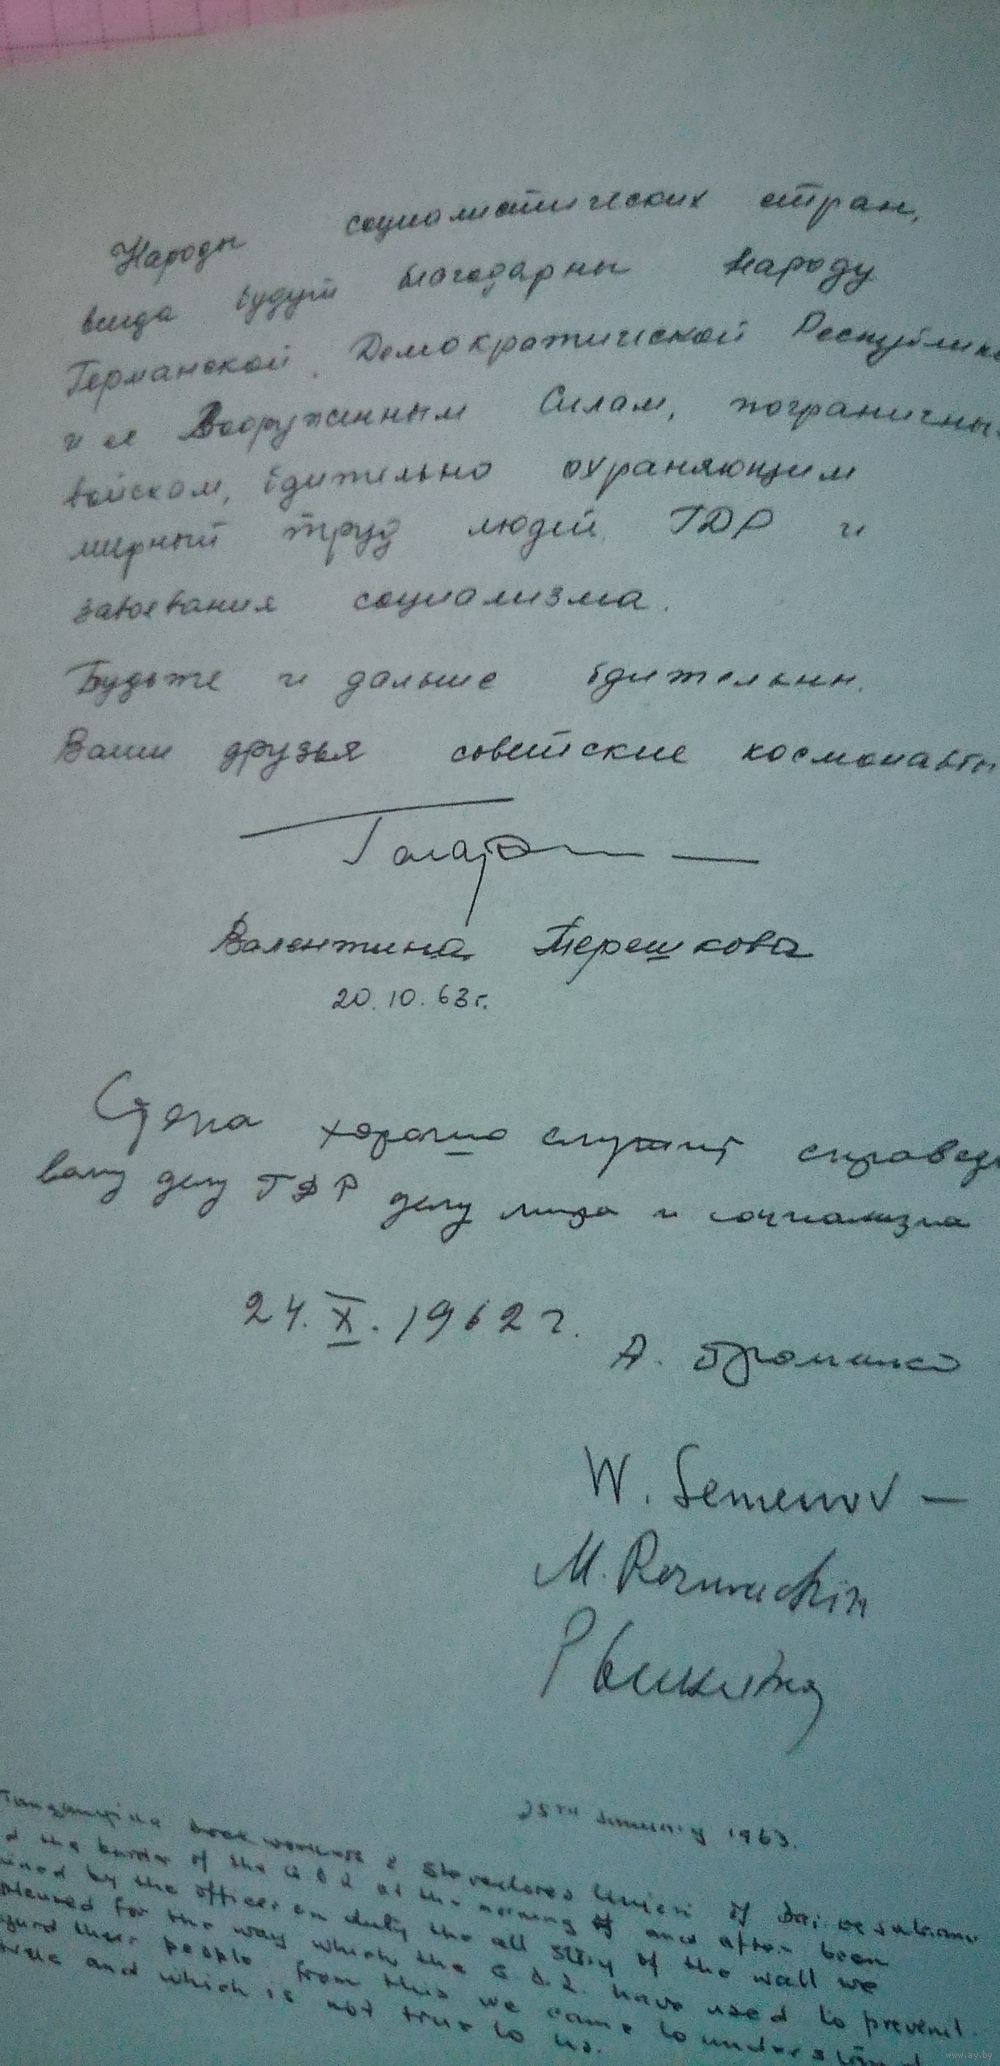 Народы социалистических стран,
всегда будут благодарны Народу
Германской Демократической Республики
и ее Вооруженным Силам, пограничным
войскам, бдительно охраняющим
мирный труд людей ГДР и
завоевания социализма.
Будьте и дальше бдительны.
Ваши друзья советские космонавты
Гагарин
Валентина Терешкова
20.10.63г.
Стена хорошо служит справедли
вому делу ГДР делу мира и социализма
24.X.1962г.
А. Громыко
W. Semenov
M.
25TH January 1963.
Tanganyika Dock workers & Stevedores Union of Dar es salaam
the border of the G D R at the morning of and after been
by the officer on duty the all story of the wall we
for the way which the G D R. have used to prevent
their people from this we came to understand
and which is not true to us.
www.ay.by